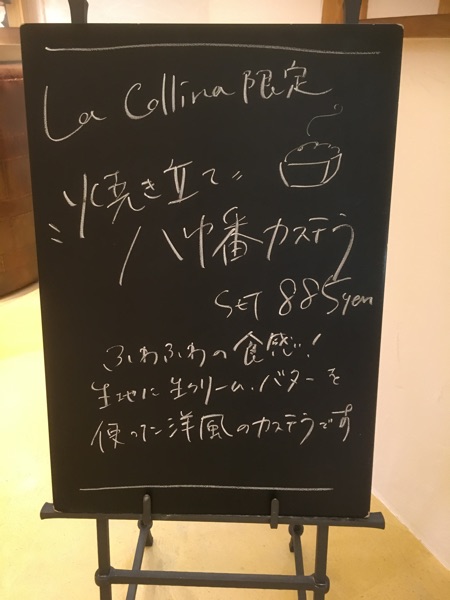 La Collina 限定
焼き立て
八幡カステラ
SET 885yen
ふわふわの食感!
生地に生クリーム・バターを
使った洋風のカステラです